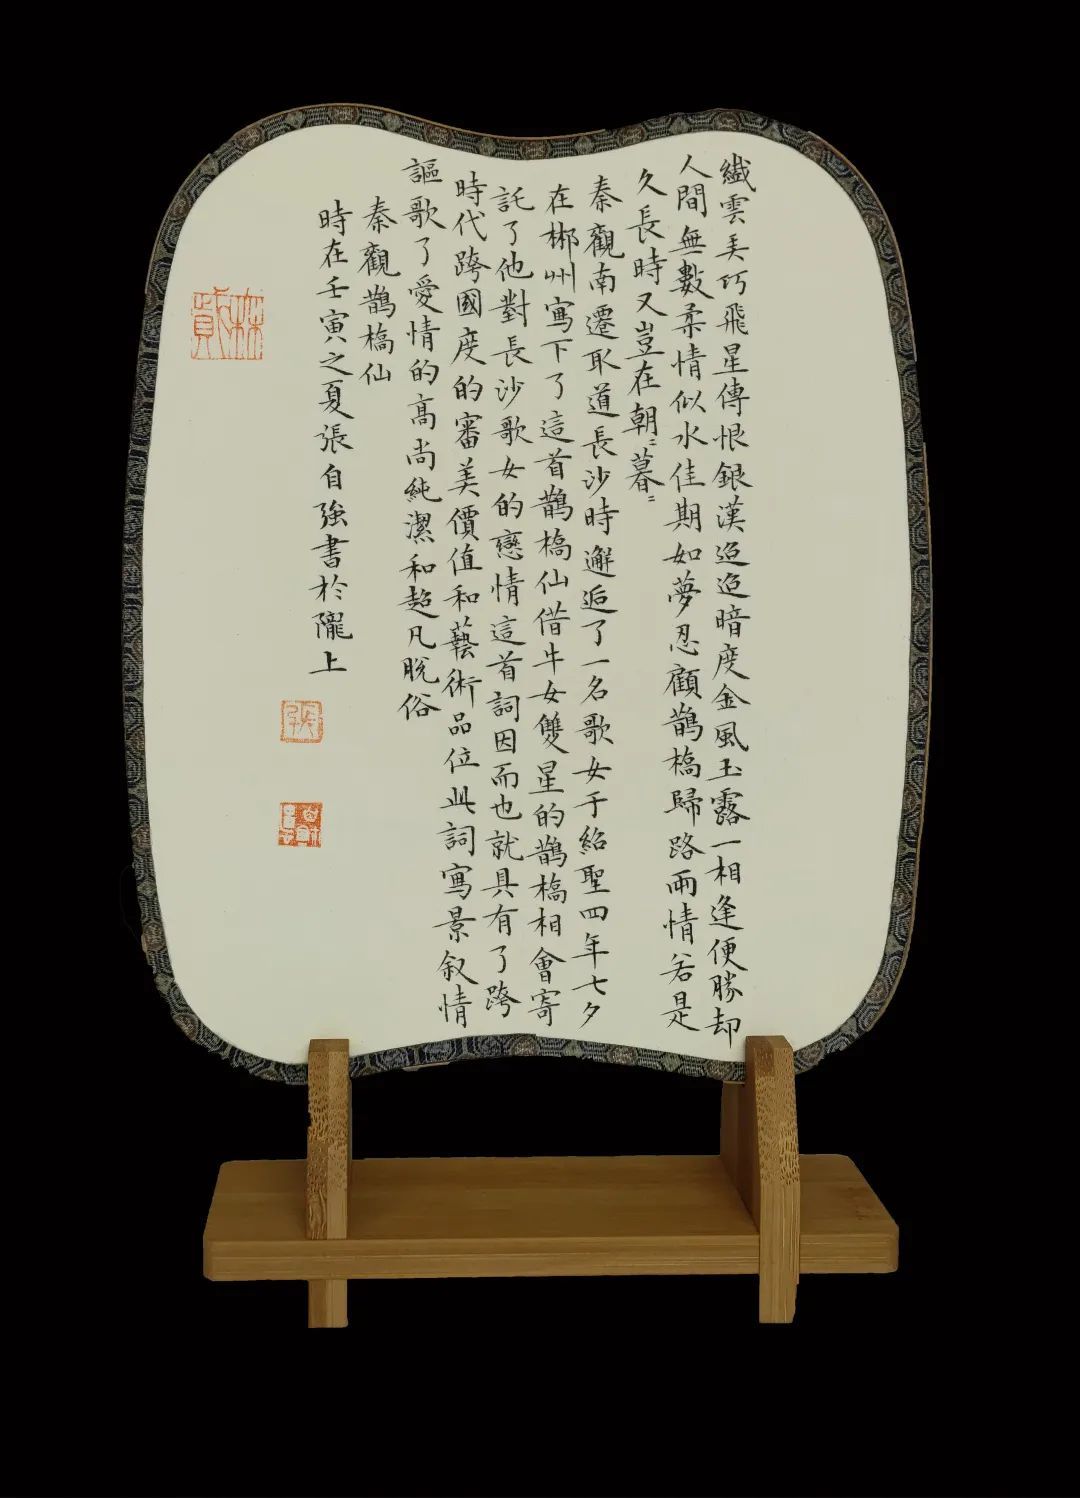 纖雲弄巧飛星傳恨銀漢迢迢暗度金風玉露一相逢便勝却
人間無數柔情似水佳期如夢忍顧鵲橋歸路兩情若是
久長時又豈在朝〻暮〻
秦觀南遷取道長沙時邂逅了一名歌女于紹聖四年七夕
在郴州寫下了這首鵲橋仙借牛女雙星的鵲橋相會寄
託了他對長沙歌女的戀情這首詞因而也就具有了跨
時代跨國度的審美價值和藝術品位此詞寫景叙情
謳歌了愛情的高尚純潔和超凡脫俗
秦觀鵲橋仙
時在壬寅之夏張自強書於隴上